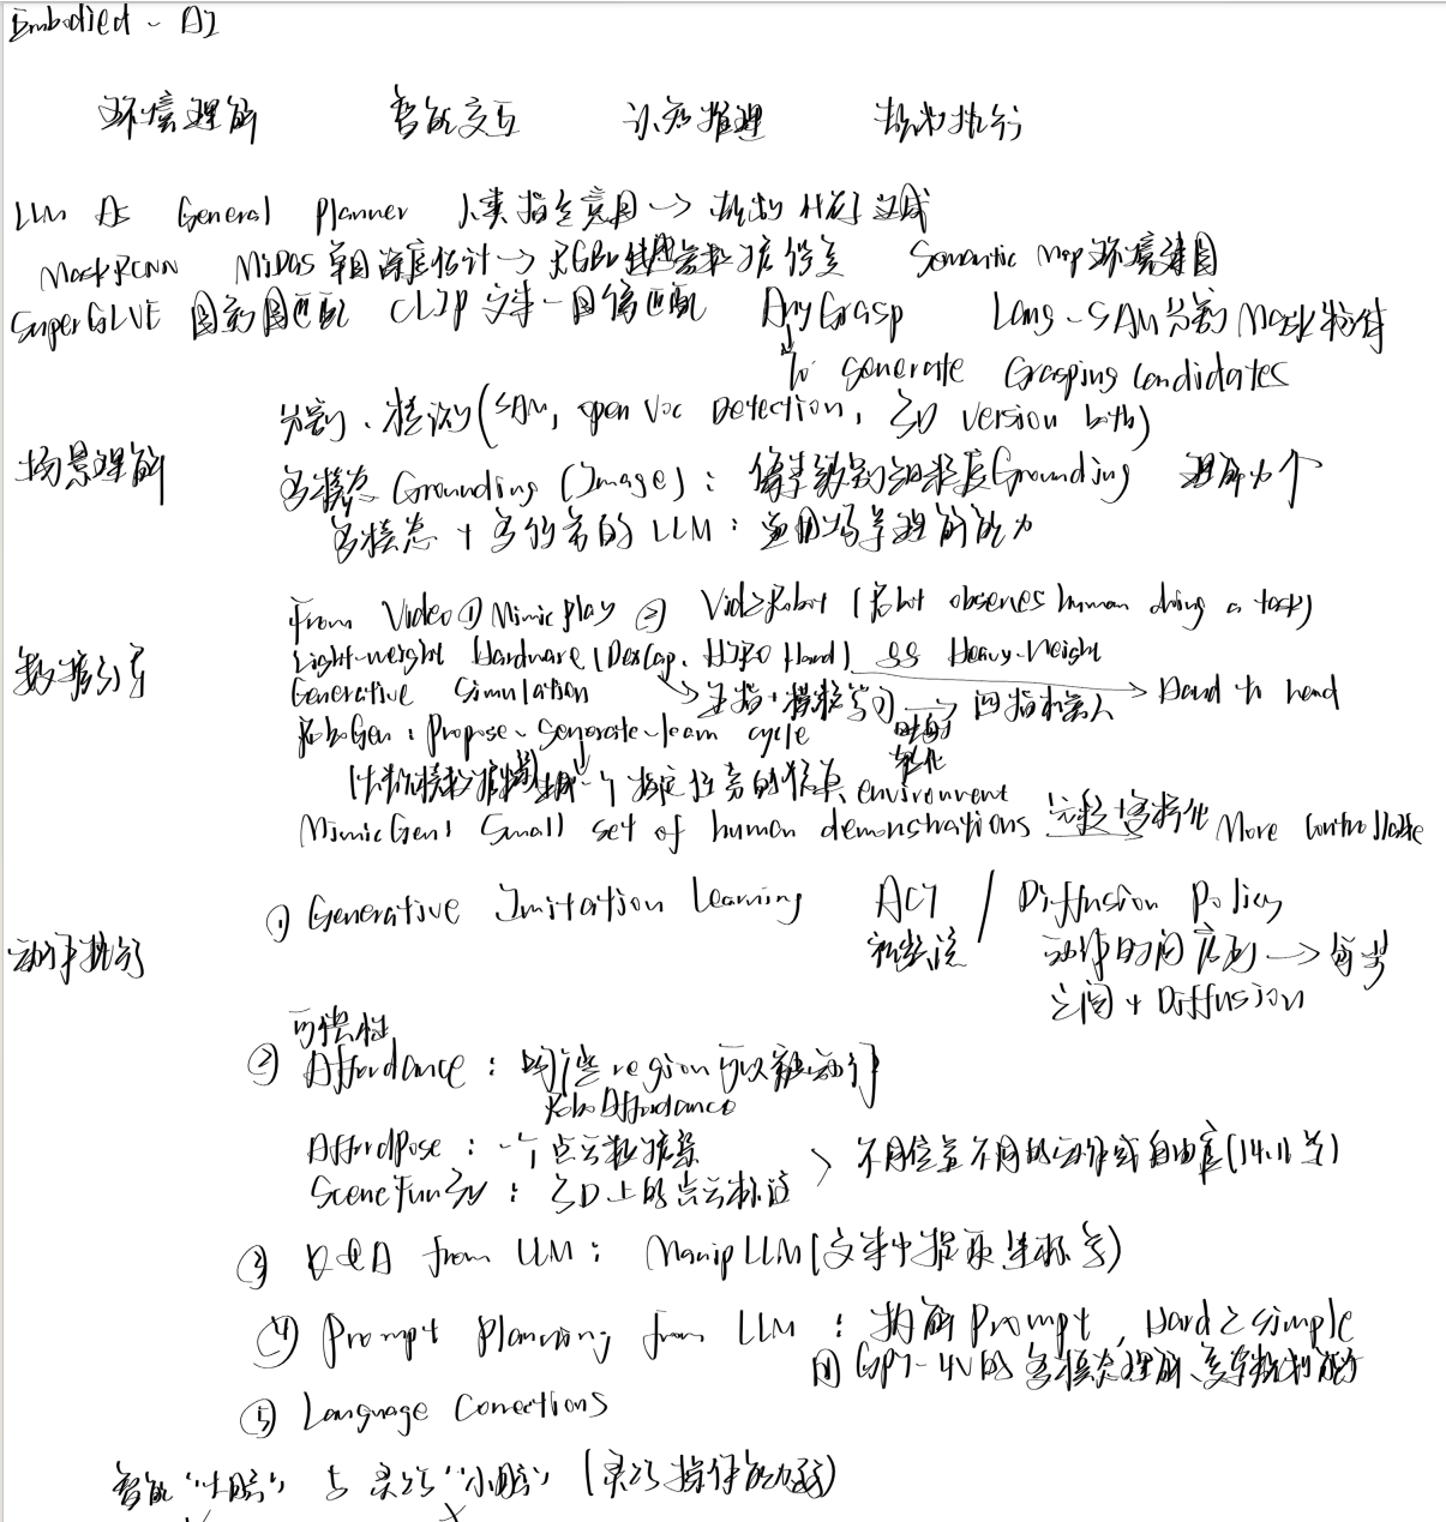 Embodied - AI
环境理解 智能交互 认知推理 规划执行
LLM As General Planner 人类指令意图 → 规划 任务 达成
MaskRCNN MiDaS 单目深度估计 → RGB 信息 Semantic Map 环境建图
SuperGLUE 图到图匹配 CLIP 文本-图像匹配 AnyGrasp Lang-SAM 分割 Mask 物体
to generate Grasping Candidates
分割、检测(SAM, open Voc Detection, 3D version both)
场景理解
多模态 Grounding (Image): 像素级别细粒度Grounding 理解力个
多模态 + 多任务的 LLM: 通用场景理解能力
From Video ① MimicPlay ② Vid2Robot (Robot observes human doing a task)
数据引导
Light-weight Hardware (DexCap, Hand) Heavy-Weight
Generative Simulation → 五指+模仿学习 → 四指机器人 → Hand to hand
RoboGen: Propose-generate-learn cycle
生成一个指定任务的仿真 environment
MimicGen: Small set of human demonstrations More Controllable
① Generative Imitation Learning ACT / Diffusion Policy
动作执行
动作时间序列 →
空间 + Diffusion
可供性
② Affordance: 哪些region可以被执行
RoboAffordance
AffordPose: 一个点云数据集
SceneFun3D: 3D上的点云标注 > 不同位置不同的动作或自由度(14.11节)
③ Q&A from LLM: ManipLLM(文本中提取坐标等)
④ Prompt Planning from LLM: 拆解Prompt, Hard 2 simple
用 GPT-4V的多模态理解、
⑤ Language Corrections
智能"大脑" 与 灵巧"小脑" (灵巧操作能力弱)